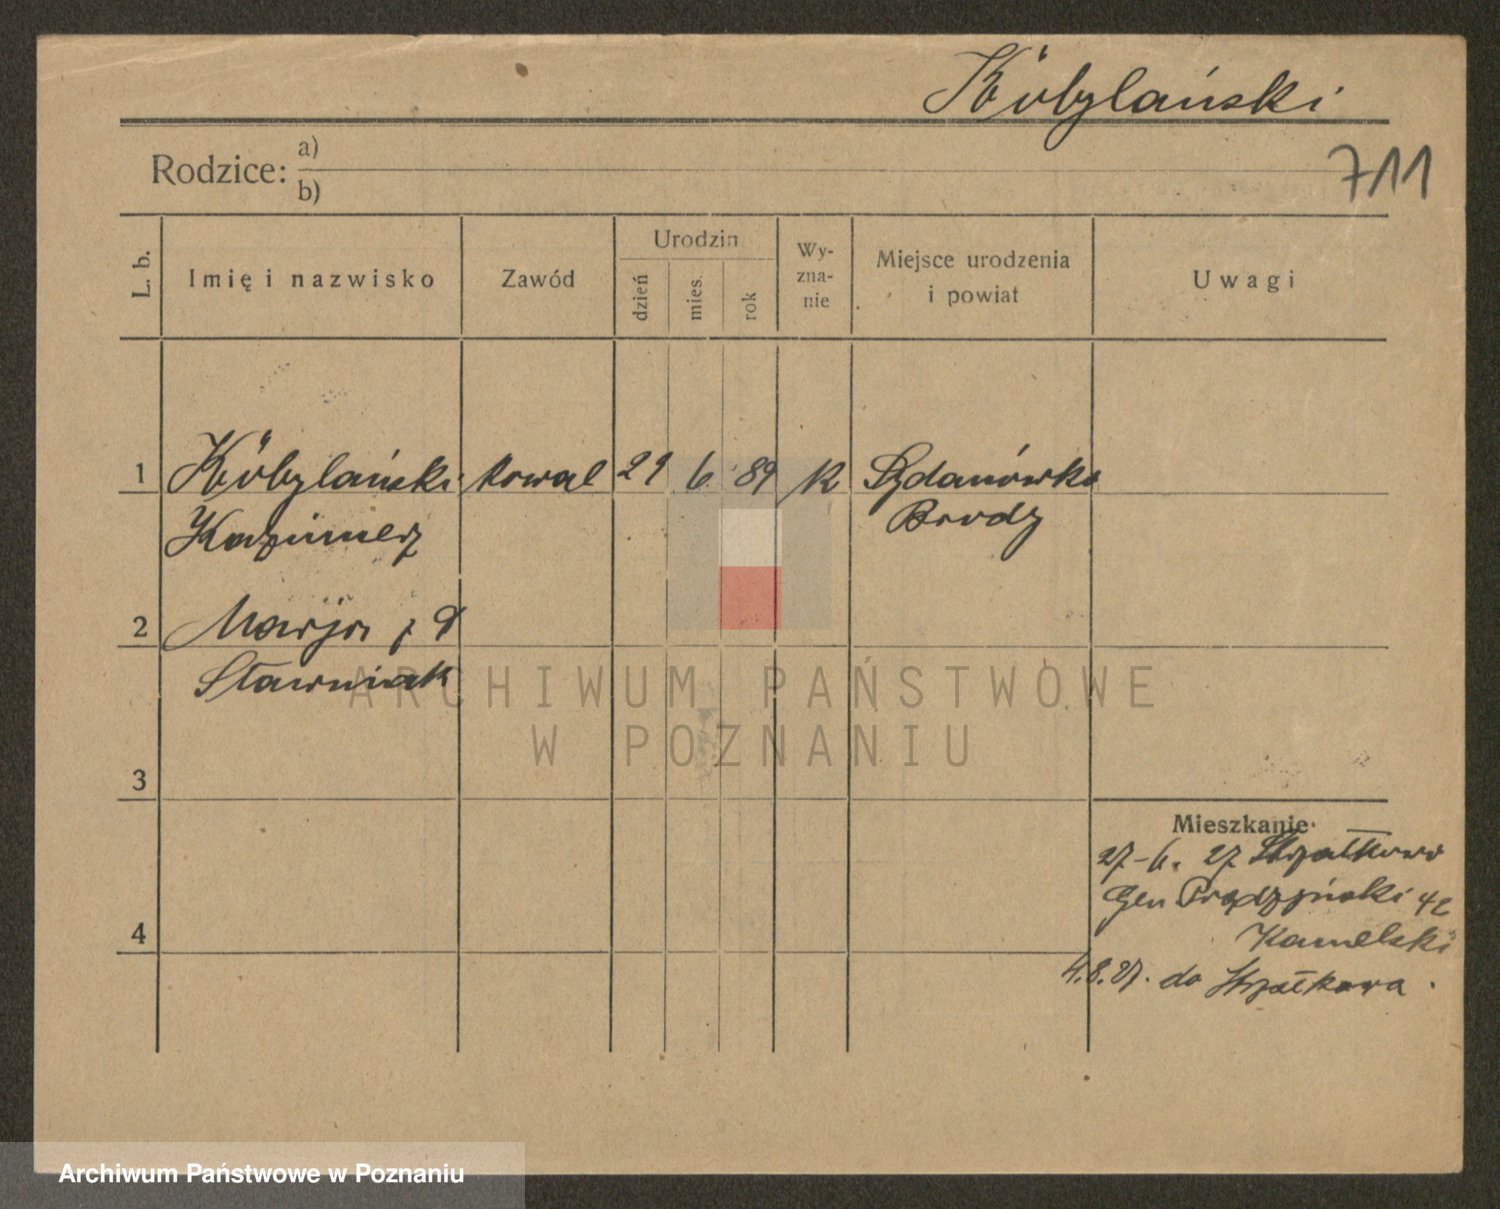 Köbylański
711
Rodzice: a)
b)
L. b.
Imię i nazwisko
Zawód
Urodzin
dzień
mies.
rok
Wy-
zna-
nie
Miejsce urodzenia
i powiat
Uwagi
1 Köbylański kowal 29 6 89 k
Kazimierz Brody
2 Marja z d
Stawniak
3
4
Mieszkanie
27-6. 27 Strzałkowo
Gen Prądzyński 42
Kamelski
4.8.27. do Strzałkowa.
ARCHIWUM PAŃSTWOWE
W POZNANIU
Archiwum Państwowe w Poznaniu